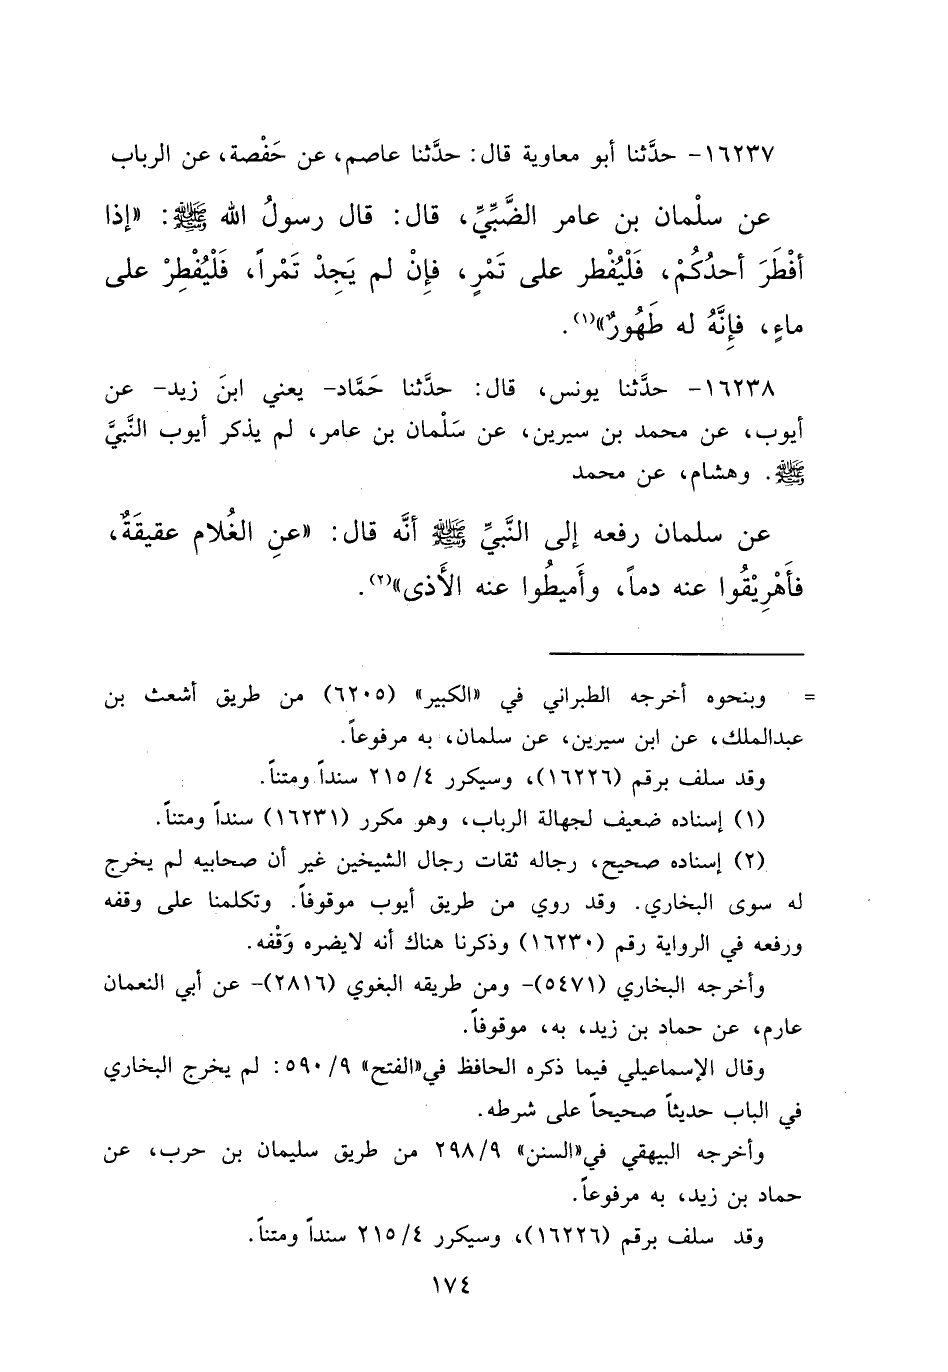 ١٦٢٣٧- حدَّثنا أبو معاوية قال: حدَّثنا عاصم، عن حَفْصة، عن الرباب
عن سلْمان بن عامر الضَّبِّيِّ، قال: قال رسولُ الله ﷺ: «إذا
أفْطَرَ أحدُكُمْ، فَلْيُفْطر على تَمْرٍ، فإنْ لم يَجِدْ تَمْراً، فَلْيُفْطِرْ على
ماءٍ، فإِنَّهُ له طَهُورٌ»(١).
١٦٢٣٨- حدَّثنا يونس، قال: حدَّثنا حَمَّاد- يعني ابنَ زيد- عن
أيوب، عن محمد بن سيرين، عن سَلْمان بن عامر، لم يذكر أيوب النَّبيَّ
ﷺ. وهشام، عن محمد
عن سلمان رفعه إلى النَّبيِّ ﷺ أنَّه قال: «عنِ الغُلام عقيقَةٌ،
فأَهْرِيْقُوا عنه دماً، وأَميطُوا عنه الأَذى»(٢).
= وبنحوه أخرجه الطبراني في «الكبير» (٦٢٠٥) من طريق أشعث بن
عبدالملك، عن ابن سيرين، عن سلمان، به مرفوعاً.
وقد سلف برقم (١٦٢٢٦)، وسيكرر ٢١٥/٤ سنداً ومتناً.
(١) إسناده ضعيف لجهالة الرباب، وهو مكرر (١٦٢٣١) سنداً ومتناً.
(٢) إسناده صحيح، رجاله ثقات رجال الشيخين غير أن صحابيه لم يخرج
له سوى البخاري. وقد روي من طريق أيوب موقوفاً. وتكلمنا على وقفه
ورفعه في الرواية رقم (١٦٢٣٠) وذكرنا هناك أنه لايضره وَقْفه.
وأخرجه البخاري (٥٤٧١)- ومن طريقه البغوي (٢٨١٦)- عن أبي النعمان
عارم، عن حماد بن زيد، به، موقوفاً.
وقال الإسماعيلي فيما ذكره الحافظ في«الفتح» ٥٩٠/٩: لم يخرج البخاري
في الباب حديثاً صحيحاً على شرطه.
وأخرجه البيهقي في«السنن» ٢٩٨/٩ من طريق سليمان بن حرب، عن
حماد بن زيد، به مرفوعاً.
وقد سلف برقم (١٦٢٢٦)، وسيكرر ٢١٥/٤ سنداً ومتناً.
١٧٤